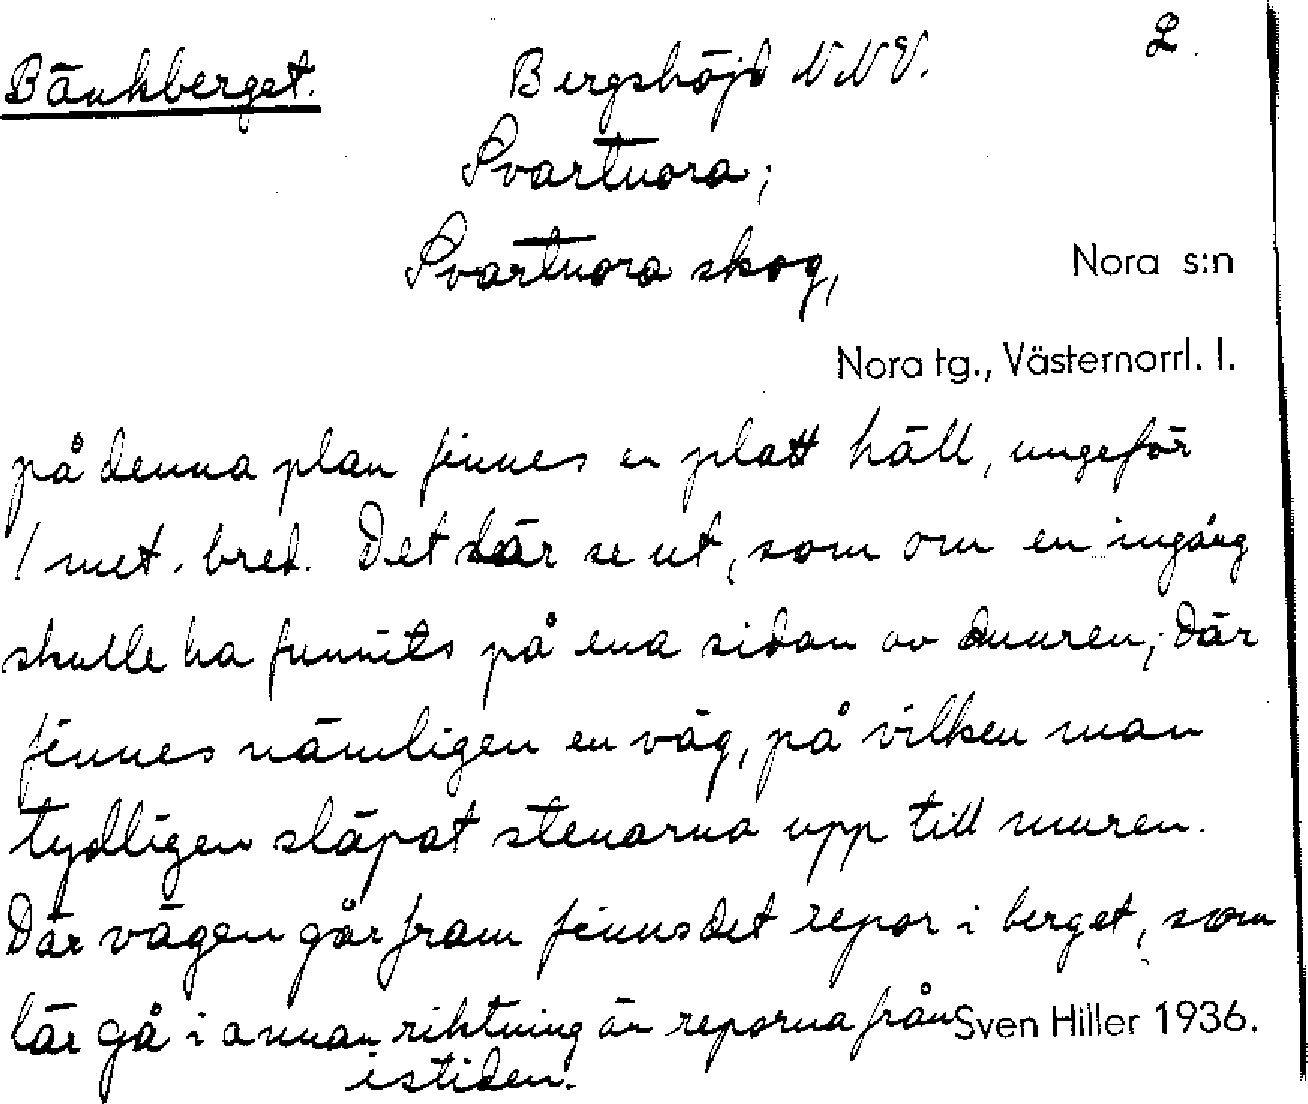 2.
Bänkberget. Bergshöjd N.N.V.
Svartnora,
Svartnora skog,
Nora s:n
Nora tg., Västernorrl. l.
på denna plan finnes en platt häll, ungefär
1 met. bred. Det lär se ut, som om en ingång
skulle ha funnits på ena sidan av muren; där
finnes nämligen en väg, på vilken man
tydligen släpat stenarna upp till muren.
Där vägen går fram finns det repor i berget, som
lär gå i annan riktning än reporna från
istiden.
Sven Hiller 1936.